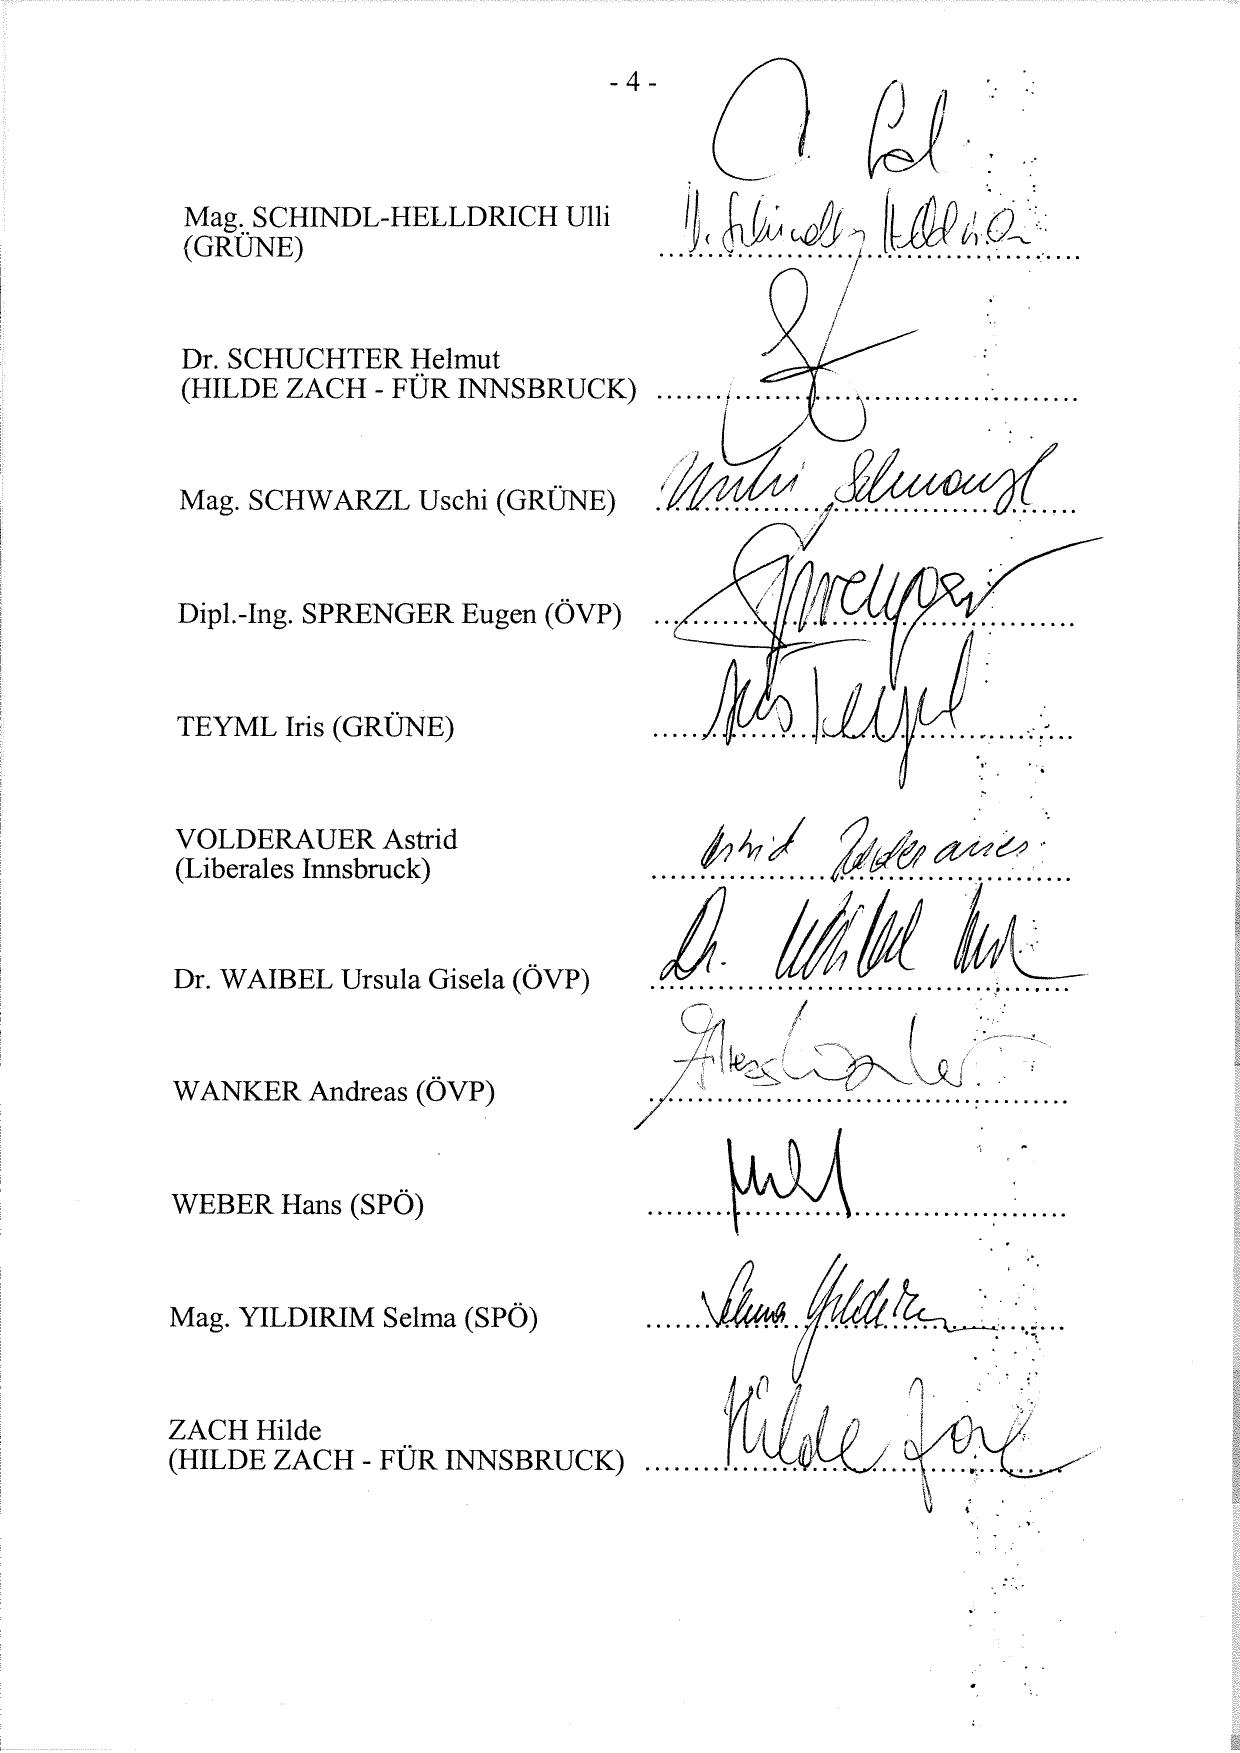 - 4 -
Mag. SCHINDL-HELLDRICH Ulli
(GRÜNE)
U. Schindl-Helldrich
Dr. SCHUCHTER Helmut
(HILDE ZACH - FÜR INNSBRUCK)
Mag. SCHWARZL Uschi (GRÜNE)
Uschi Schwarzl
Dipl.-Ing. SPRENGER Eugen (ÖVP)
Sprenger
TEYML Iris (GRÜNE)
Iris Teyml
VOLDERAUER Astrid
(Liberales Innsbruck)
Astrid Volderauer
Dr. WAIBEL Ursula Gisela (ÖVP)
Dr. Waibel
WANKER Andreas (ÖVP)
Andreas Wanker
WEBER Hans (SPÖ)
Mag. YILDIRIM Selma (SPÖ)
Selma Yildirim
ZACH Hilde
(HILDE ZACH - FÜR INNSBRUCK)
Hilde Zach